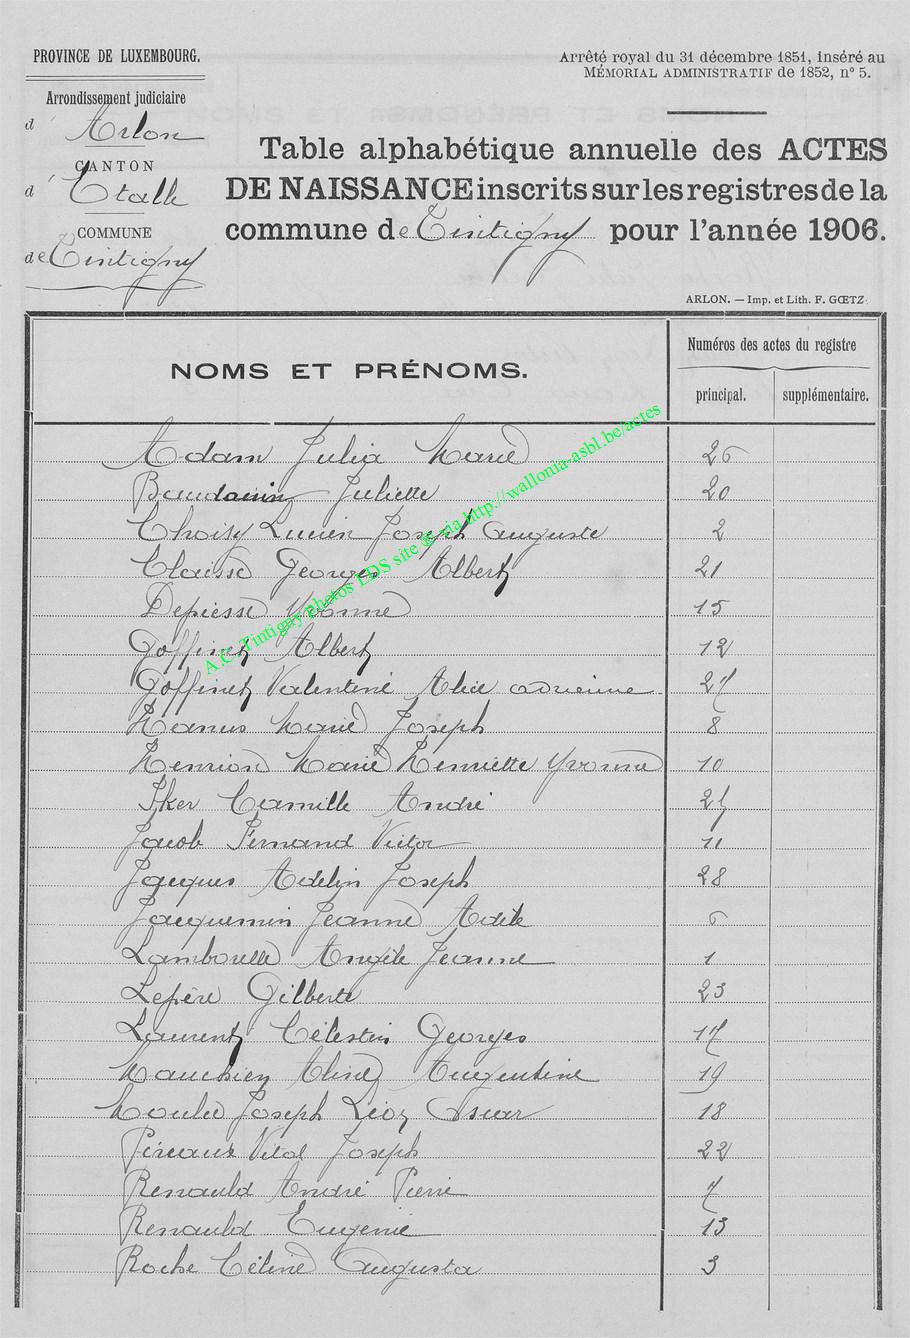 PROVINCE DE LUXEMBOURG.
Arrondissement judiciaire
d'Arlon
CANTON
d'Etalle
COMMUNE
de Tintigny
Arrêté royal du 31 décembre 1851, inséré au
MÉMORIAL ADMINISTRATIF de 1852, n° 5.
Table alphabétique annuelle des ACTES
DE NAISSANCE inscrits sur les registres de la
commune de Tintigny pour l'année 1906.
ARLON. — Imp. et Lith. F. GŒTZ
NOMS ET PRÉNOMS.
Numéros des actes du registre
principal. supplémentaire.
Adam Julia Marie 26
Baudouin Juliette 20
Choisy Lucien Joseph Auguste 2
Clausse Georges Albert 21
Depiesse Yvonne 15
Goffinet Albert 12
Goffinet Valentine Alice Adrienne 27
Hanus Marie Joseph 8
Henrion Marie Henriette Yvonne 10
Iker Camille André
Jacob Fernand Victor 11
Jacques Adelin Joseph 28
Jacquemin Jeanne Adèle 6
Lamborelle Angèle Jeanne 1
Lepère Gilberte 23
Laurent Célestin Georges 17
Mauchien Aline Augustine 19
Joseph Léon Oscar 18
Pireaux Vital Joseph 22
Renauld André Pierre 7
Renauld Eugénie 13
Roche Céline Augusta 3
A.C. Tintigny photos LDS site @ via http://wallonia-asbl.be/actes